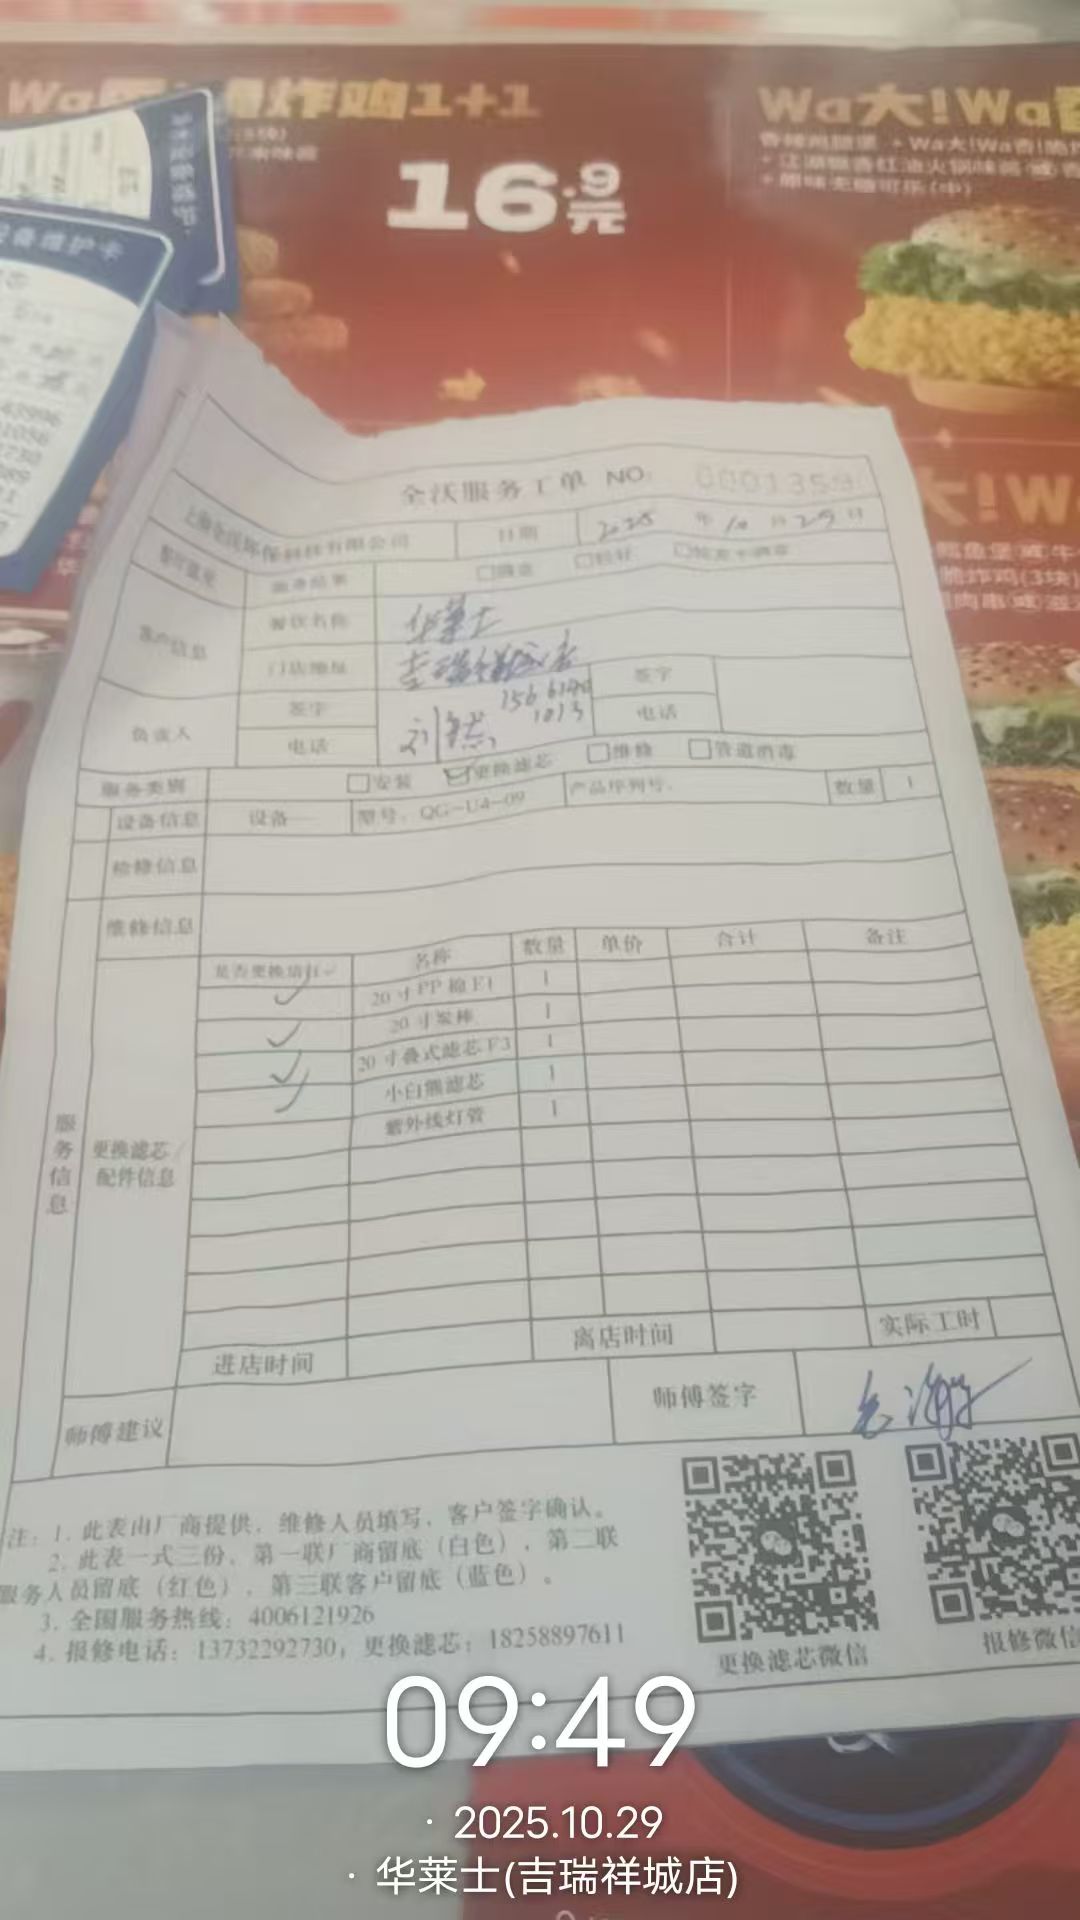 炸鸡1+1
Wa大!Wa
16.9元
+原味无糖可乐(中)
设备维护卡
全沃服务工单 NO: 0001359
上海全沃环保科技有限公司 日期 2025 年 10 月 29 日
餐饮名称 华莱士
客户信息
门店地址 吉瑞祥城店
签字 156 6190 签字
负责人 刘 1013
电话 电话
服务类别 □安装 ☑更换滤芯 □维修 □管道消毒
设备信息 设备 型号: QG-U4-09 产品序列号: 数量 1
检修信息
维修信息
是否更换请打√ 名称 数量 单价 合计 备注
✓ 20寸PP棉F1 1
✓ 20寸炭棒 1
✓ 20寸叠式滤芯F3 1
✓ 小白熊滤芯 1
紫外线灯管 1
服务信息
更换滤芯/
配件信息
进店时间 离店时间 实际工时
师傅建议 师傅签字
注: 1. 此表由厂商提供，维修人员填写，客户签字确认。
2. 此表一式三份，第一联厂商留底（白色），第二联
服务人员留底（红色），第三联客户留底（蓝色）。
3. 全国服务热线: 4006121926
4. 报修电话: 13732292730; 更换滤芯: 18258897611
更换滤芯微信 报修微信
09:49
· 2025.10.29
· 华莱士(吉瑞祥城店)